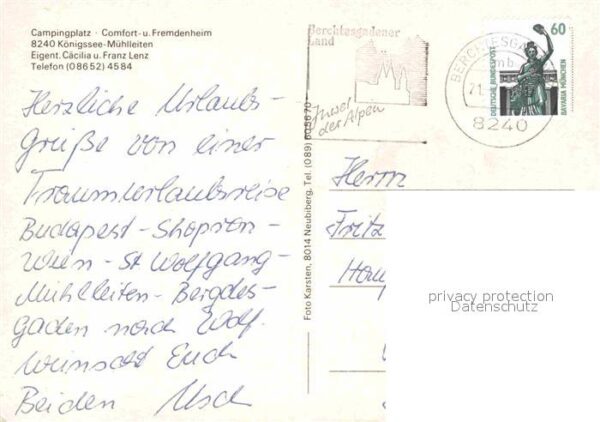 Campingplatz · Comfort- u. Fremdenheim
8240 Königssee-Mühlleiten
Eigent. Cäcilia u. Franz Lenz
Telefon (0 86 52) 45 84
Herzliche Urlaubs-
Grüße von einer
Traumurlaubsreise
Budapest - Shopron -
Wien - St Wolfgang -
Mühlleiten - Bergdes-
gaden nach Wolf.
wünscht Euch
Beiden
Foto Karsten, 8014 Neubiberg, Tel. (089) 60 56 70
Berchtesgadener
Land
Insel
der Alpen
BERCHTESGA
mb
21.
8240
60
DEUTSCHE BUNDESPOST
BAVARIA MÜNCHEN
Herrn
Fritz
privacy protection
Datenschutz